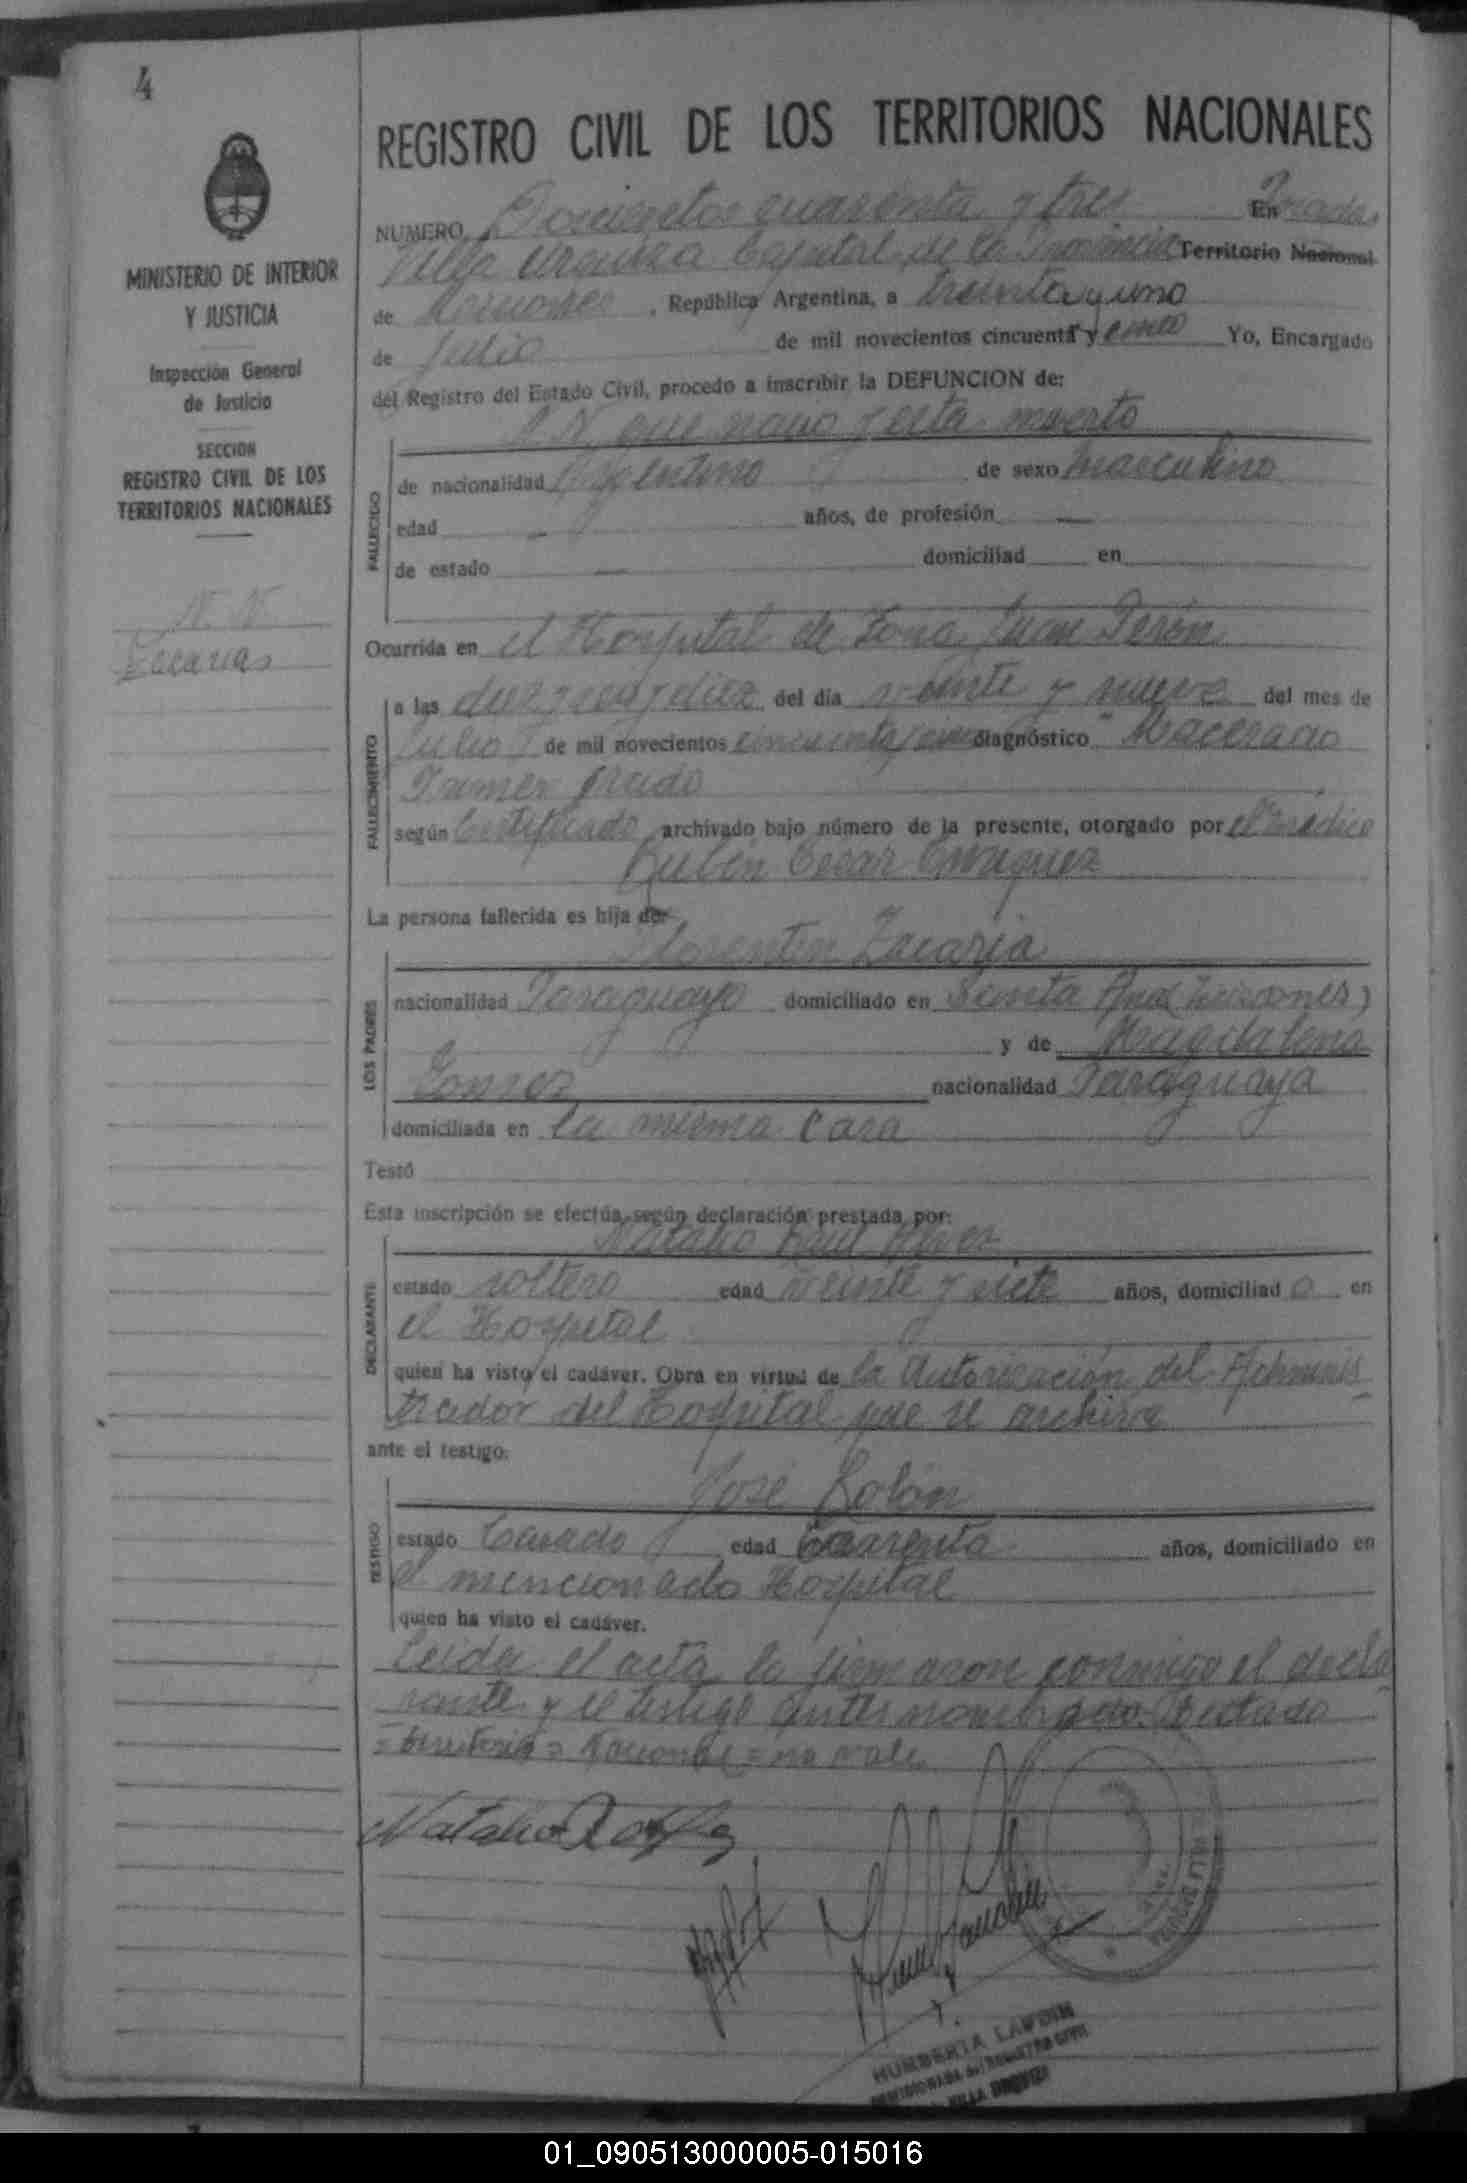 4
REGISTRO CIVIL DE LOS TERRITORIOS NACIONALES
MINISTERIO DE INTERIOR
Y JUSTICIA
Inspección General
de Justicia
SECCION
REGISTRO CIVIL DE LOS
TERRITORIOS NACIONALES
N. N.
Zacarias
NUMERO Doscientos cuarenta y tres En Posadas
Villa Urquiza Capital de la Provincia Territorio Nacional
de Misiones, República Argentina, a treinta y uno
de Julio de mil novecientos cincuenta y cinco Yo, Encargado
del Registro del Estado Civil, procedo a inscribir la DEFUNCION de:
N. N. que nacio y esta muerto
FALLECIDO
de nacionalidad Argentino de sexo masculino
edad — años, de profesión —
de estado — domiciliad en
Ocurrida en el Hospital de Zona Juan Perón
FALLECIMIENTO
a las diez y seis y diez del día veinte y nueve del mes de
Julio de mil novecientos cincuenta y cinco diagnóstico "Macerado
Primer grado
según Certificado archivado bajo número de la presente, otorgado por el médico
Rubén Cesar
La persona fallecida es hija de:
LOS PADRES
Florentin Zacaria
nacionalidad Paraguayo domiciliado en Santa Ana (Misiones)
y de Magdalena
Gomez nacionalidad Paraguaya
domiciliada en la misma casa
Testó
Esta inscripción se efectúa según declaración prestada por:
DECLARANTE
Natalio Raul
estado soltero edad veinte y siete años, domiciliad o en
el Hospital
quien ha visto el cadáver. Obra en virtud de la Autorización del Adminis
trador del Hospital que se archiva
ante el testigo:
TESTIGO
José Rolón
estado Casado edad Cuarenta años, domiciliado en
el mencionado Hospital
quien ha visto el cadáver.
Leida el acta la firmaron conmigo el decla
rante y el testigo antes nombrado. Testado
=territorio= Nacional= no vale.
Natalio
HUMBERTA
DEL REGISTRO CIVIL
VILLA URQUIZA
01_090513000005-015016